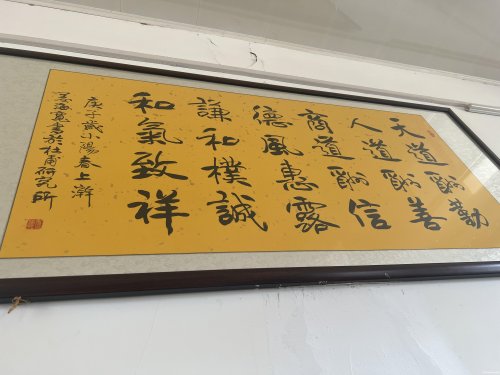 天道酬勤
人道酬善
商道酬信
德風惠露
謙和樸誠
和氣致祥
庚子歲小陽春上澣
海寬書於杜甫研究所